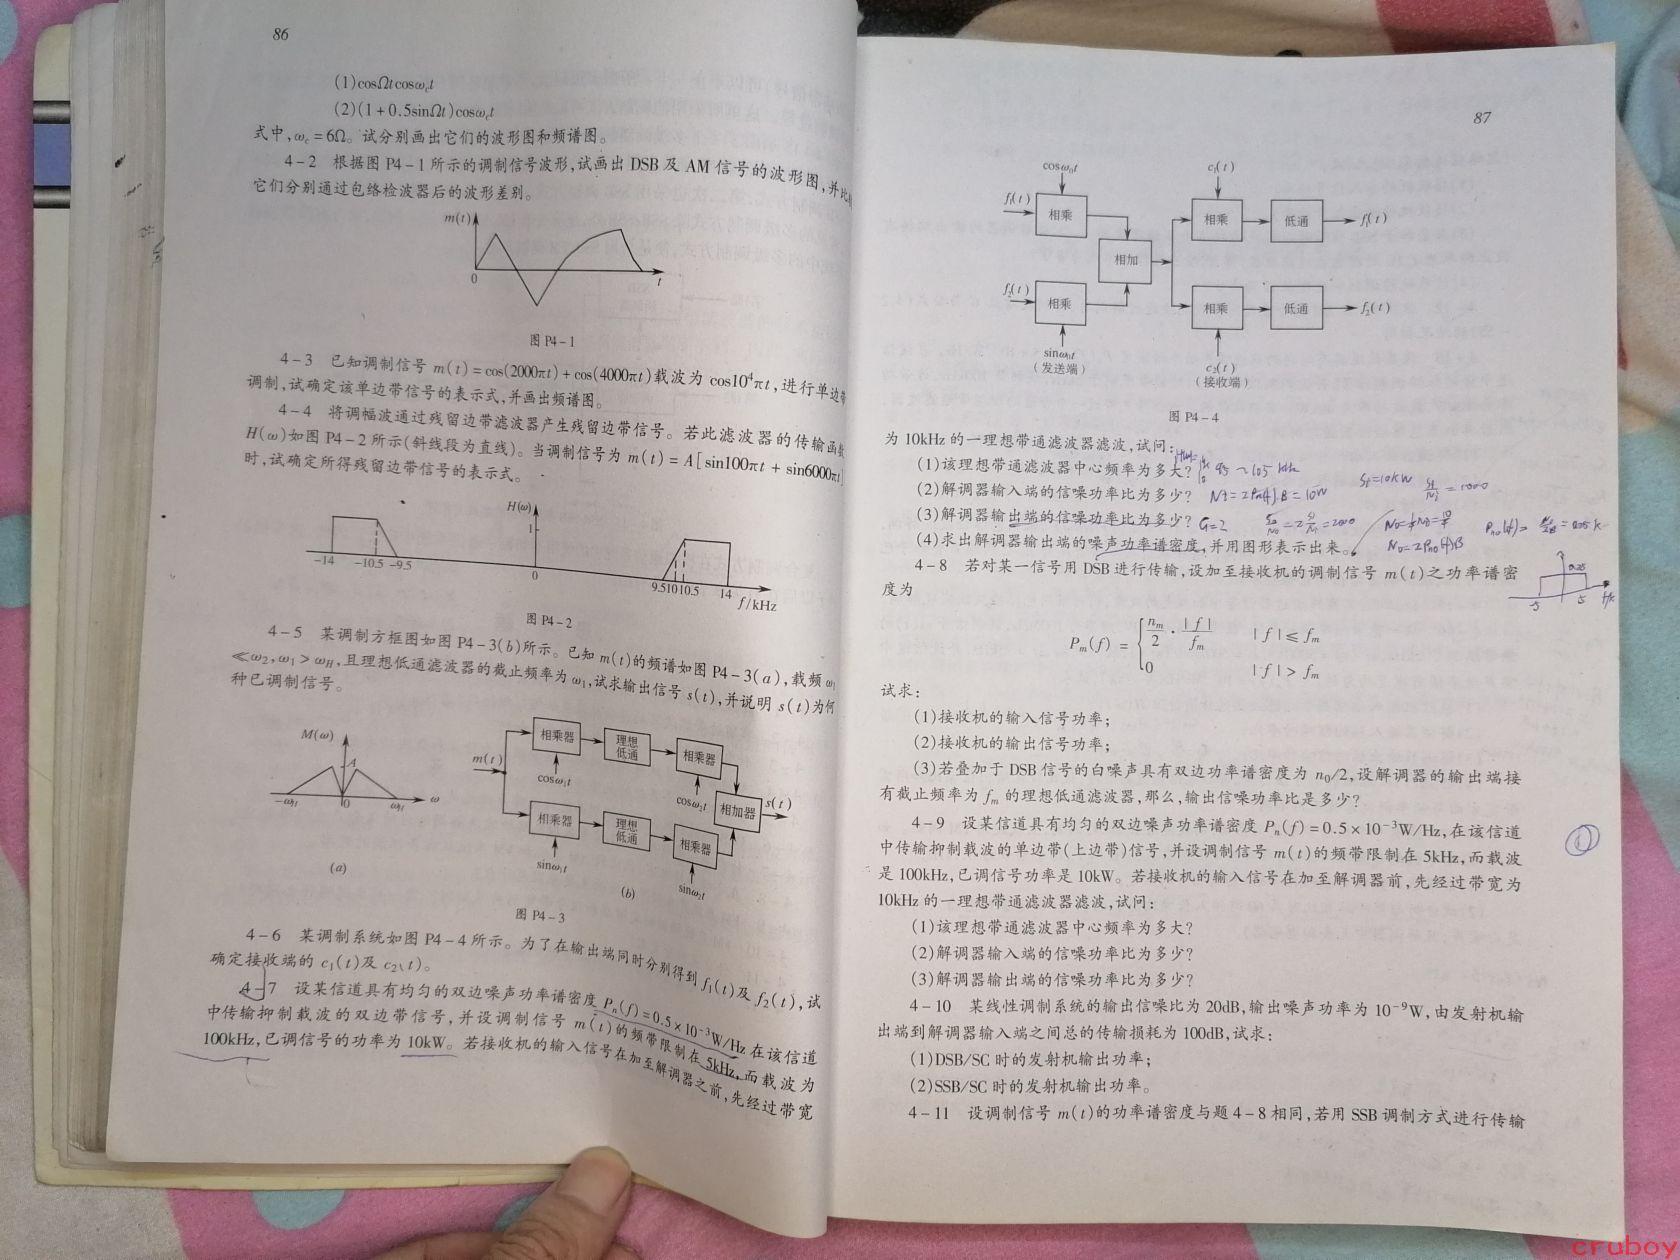 86
(1)cosΩtcosω_ct
(2)(1+0.5sinΩt)cosω_ct
式中,ω_c=6Ω。试分别画出它们的波形图和频谱图。
4-2 根据图 P4-1 所示的调制信号波形,试画出 DSB 及 AM 信号的波形图,并比较
它们分别通过包络检波器后的波形差别。
m(t)
0
t
图 P4-1
4-3 已知调制信号 m(t)=cos(2000πt)+cos(4000πt)载波为 cos10⁴πt,进行单边带
调制,试确定该单边带信号的表示式,并画出频谱图。
4-4 将调幅波通过残留边带滤波器产生残留边带信号。若此滤波器的传输函数
H(ω)如图 P4-2 所示(斜线段为直线)。当调制信号为 m(t)=A[sin100πt+sin6000πt]
时,试确定所得残留边带信号的表示式。
H(ω)
1
-14 -10.5 -9.5 0 9.5 10 10.5 14 f/kHz
图 P4-2
4-5 某调制方框图如图 P4-3(b)所示。已知 m(t)的频谱如图 P4-3(a),载频 ω₁
≪ω₂,ω₁>ω_H,且理想低通滤波器的截止频率为 ω₁,试求输出信号 s(t),并说明 s(t)为何
种已调制信号。
M(ω)
A
-ω_H 0 ω_H ω
(a)
m(t)
相乘器 理想低通 相乘器
cosω₁t cosω₂t
相加器 s(t)
相乘器 理想低通 相乘器
sinω₁t sinω₂t
(b)
图 P4-3
4-6 某调制系统如图 P4-4 所示。为了在输出端同时分别得到 f₁(t)及 f₂(t),试
确定接收端的 c₁(t)及 c₂(t)。
4-7 设某信道具有均匀的双边噪声功率谱密度 P_n(f)=0.5×10⁻³W/Hz 在该信道
中传输抑制载波的双边带信号,并设调制信号 m(t)的频带限制在 5kHz,而载波为
100kHz,已调信号的功率为 10kW。若接收机的输入信号在加至解调器之前,先经过带宽
87
cosω₀t c₁(t)
f₁(t) 相乘 相乘 低通 f₁(t)
相加
f₂(t) 相乘 相乘 低通 f₂(t)
sinω₀t c₂(t)
(发送端) (接收端)
图 P4-4
为 10kHz 的一理想带通滤波器滤波,试问:
(1)该理想带通滤波器中心频率为多大? 95~105 kHz
(2)解调器输入端的信噪功率比为多少? Ni=2Pn(f)·B=10W Si=10kW Si/Ni=1000
(3)解调器输出端的信噪功率比为多少? G=2 So/No=2Si/Ni=2000
(4)求出解调器输出端的噪声功率谱密度,并用图形表示出来。 No=2Pno(f)B
4-8 若对某一信号用 DSB 进行传输,设加至接收机的调制信号 m(t)之功率谱密
度为
-5 5
P_m(f) = { n_m/2 · |f|/f_m |f|≤f_m
0 |f|>f_m
试求:
(1)接收机的输入信号功率;
(2)接收机的输出信号功率;
(3)若叠加于 DSB 信号的白噪声具有双边功率谱密度为 n₀/2,设解调器的输出端接
有截止频率为 f_m 的理想低通滤波器,那么,输出信噪功率比是多少?
4-9 设某信道具有均匀的双边噪声功率谱密度 P_n(f)=0.5×10⁻³W/Hz,在该信道
中传输抑制载波的单边带(上边带)信号,并设调制信号 m(t)的频带限制在 5kHz,而载波
是 100kHz,已调信号功率是 10kW。若接收机的输入信号在加至解调器前,先经过带宽为
10kHz 的一理想带通滤波器滤波,试问:
(1)该理想带通滤波器中心频率为多大?
(2)解调器输入端的信噪功率比为多少?
(3)解调器输出端的信噪功率比为多少?
4-10 某线性调制系统的输出信噪比为 20dB,输出噪声功率为 10⁻⁹W,由发射机输
出端到解调器输入端之间总的传输损耗为 100dB,试求:
(1)DSB/SC 时的发射机输出功率;
(2)SSB/SC 时的发射机输出功率。
4-11 设调制信号 m(t)的功率谱密度与题 4-8 相同,若用 SSB 调制方式进行传输
cruboy